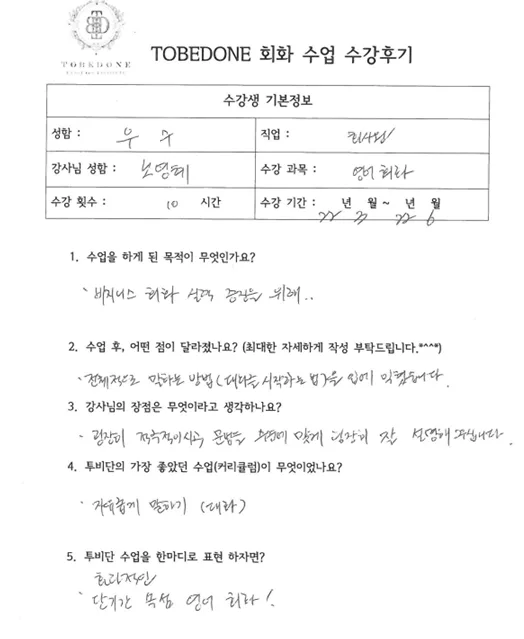 TOBEDONE
TOBEDONE 회화 수업 수강후기
수강생 기본정보
성함 : 우 수 직업 : 회사원
강사님 성함 : 노영태 수강 과목 : 영어 회화
수강 횟수 : 10 시간 수강 기간 : 22 년 3 월 ~ 22 년 6 월
1. 수업을 하게 된 목적이 무엇인가요?
비지니스 회화 실력 증진을 위해..
2. 수업 후, 어떤 점이 달라졌나요? (최대한 자세하게 작성 부탁드립니다.*^^*)
전체적으로 말하는 방법(대화를 시작하는 법)을 입에 익혔습니다.
3. 강사님의 장점은 무엇이라고 생각하나요?
굉장히 적극적이시고 문법을 수준에 맞게 굉장히 잘 설명해주십니다.
4. 투비단의 가장 좋았던 수업(커리큘럼)이 무엇이었나요?
자유롭게 말하기 (대화)
5. 투비단 수업을 한마디로 표현 하자면?
효과적인
단기간 목섬 영어 회화!